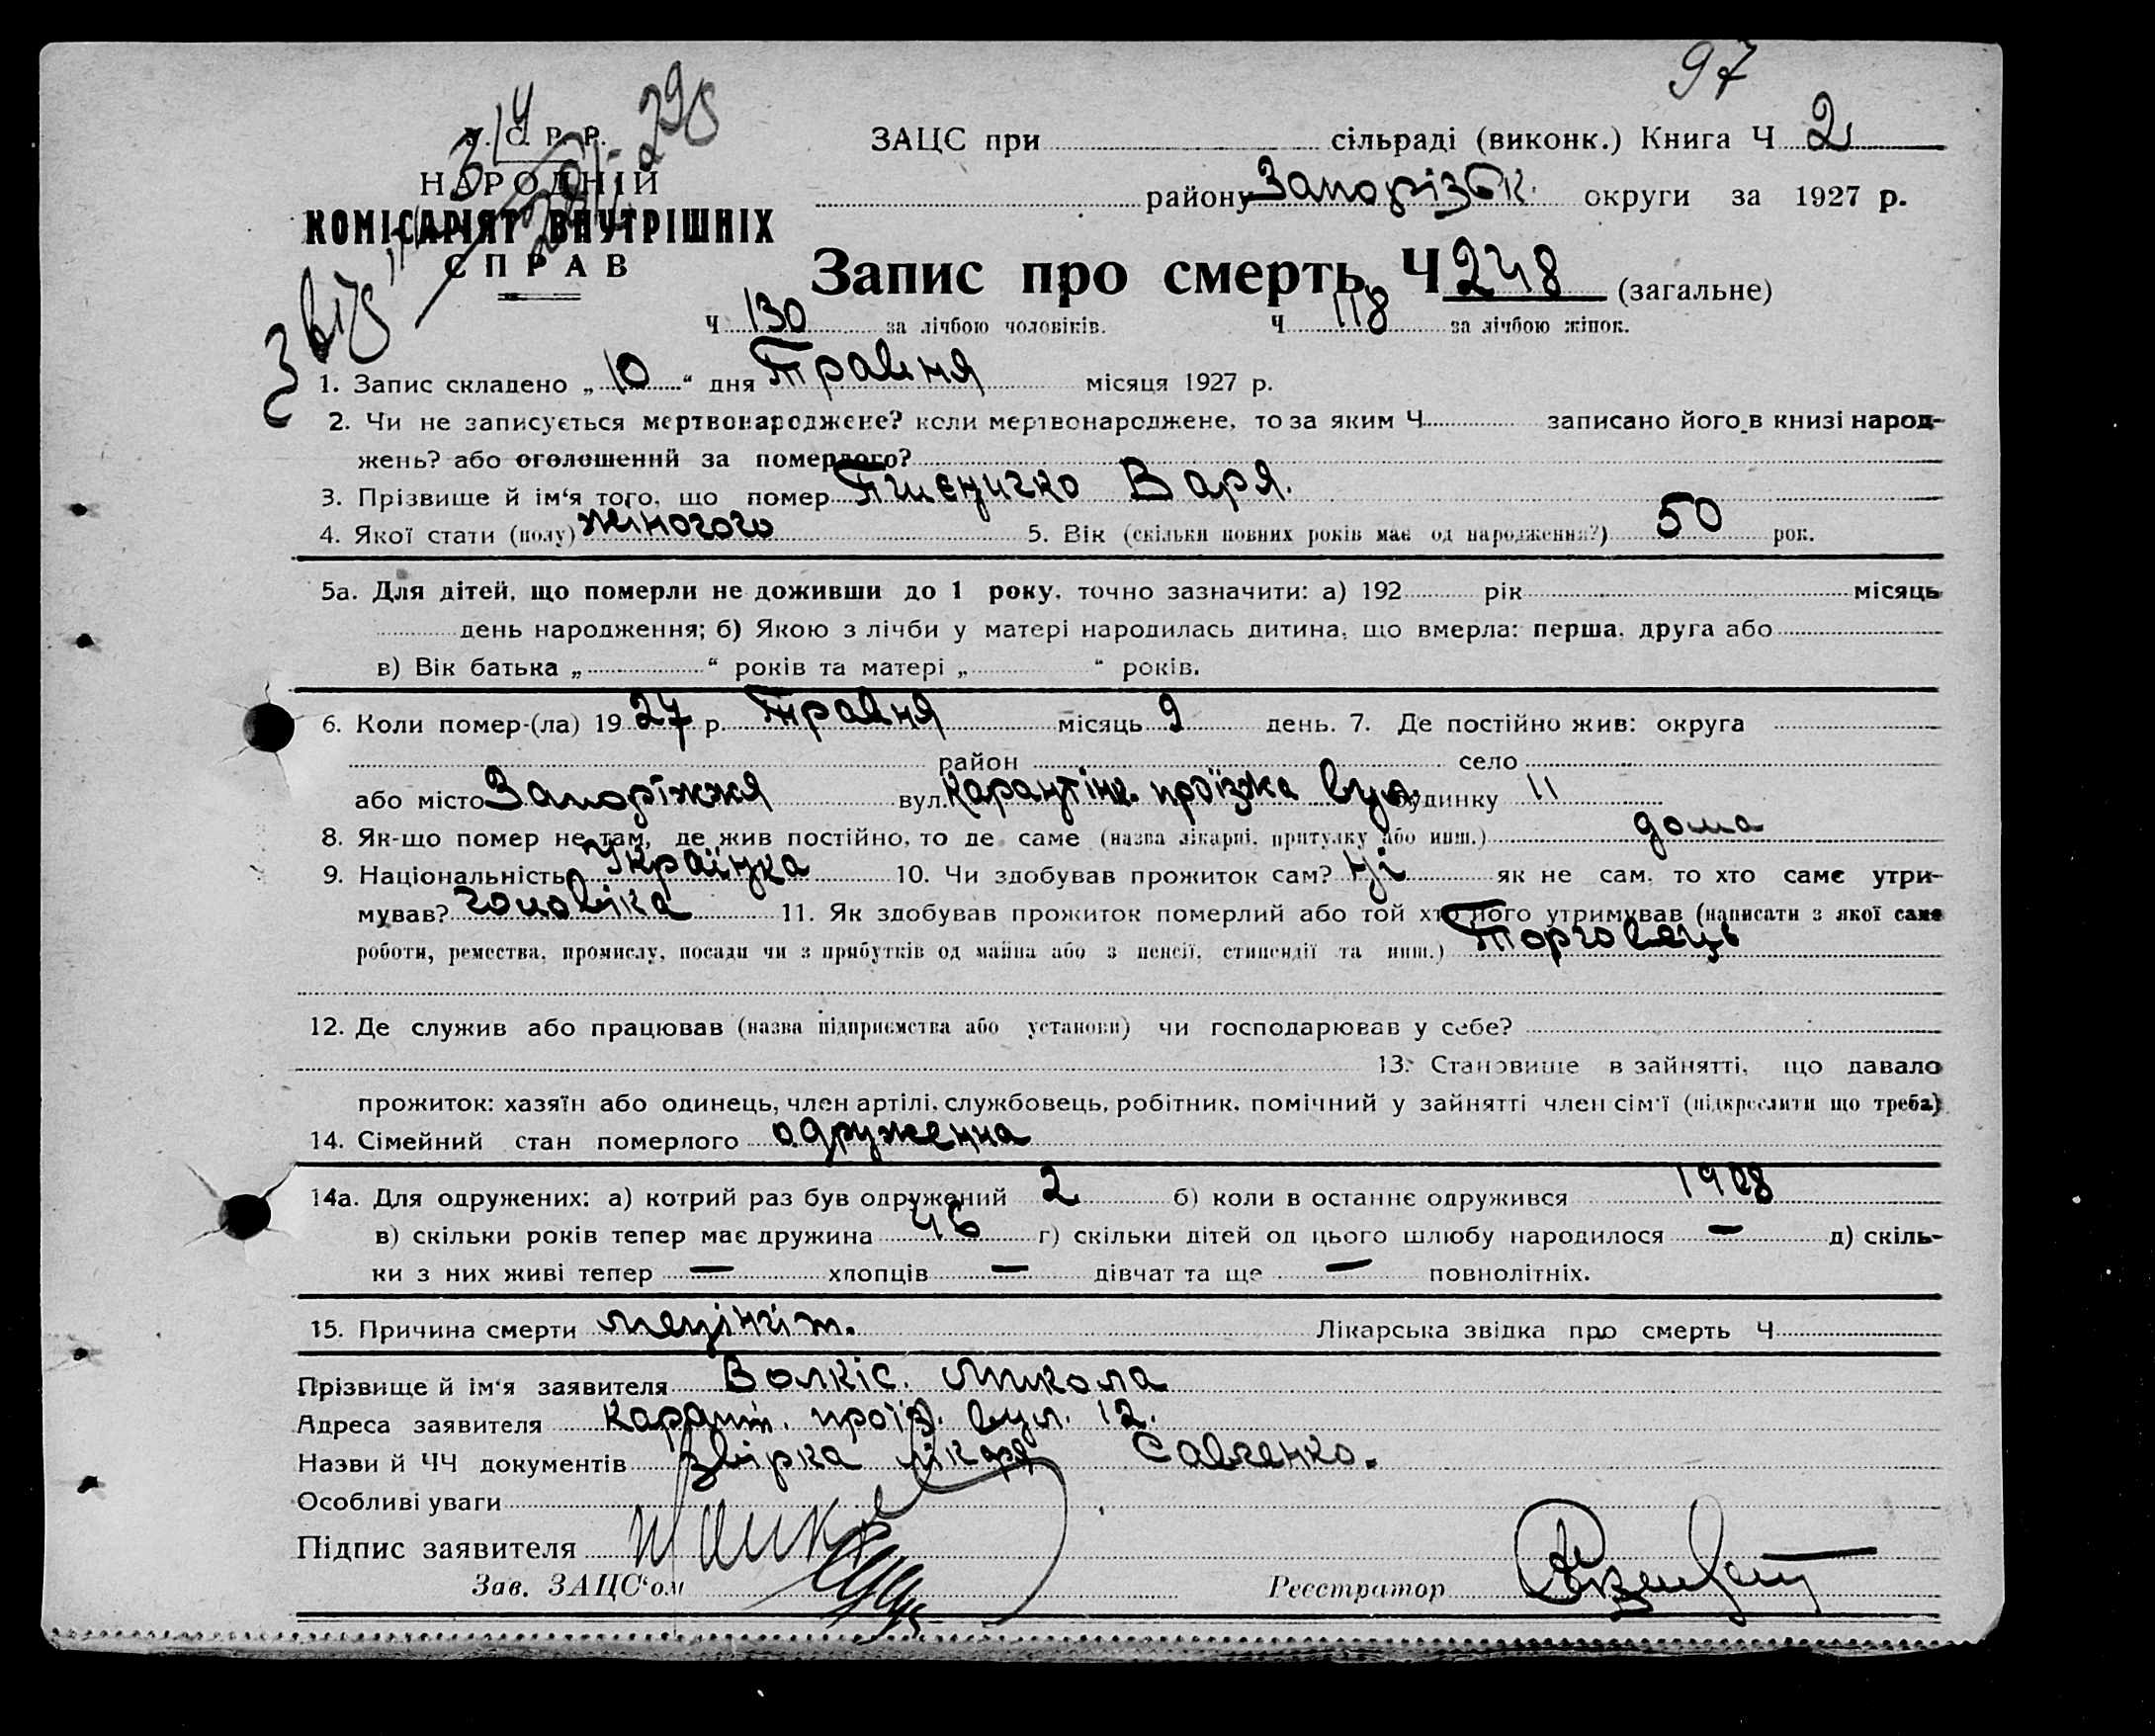 97
У. С. Р. Р.
НАРОДНІЙ
КОМІСАРІЯТ ВНУТРІШНІХ
СПРАВ
ЗАЦС при сільраді (виконк.) Книга Ч 2
району Запорізьк. округи за 1927 р.
Запис про смерть Ч 248 (загальне)
Ч 130 за лічбою чоловіків. Ч 118 за лічбою жінок.
1. Запис складено „10“ дня Травня місяця 1927 р.
2. Чи не записується мертвонароджене? коли мертвонароджене, то за яким Ч записано його в книзі народ-
жень? або оголошений за померлого?
3. Прізвище й ім‘я того, що помер Пшеничко Варя.
4. Якої стати (полу) жіночого 5. Вік (скільки повних років має од народження?) 50 рок.
5а. Для дітей, що померли не доживши до 1 року, точно зазначити: а) 192 рік місяць
день народження; б) Якою з лічби у матері народилась дитина, що вмерла: перша, друга або
в) Вік батька „ “ років та матері „ “ років.
6. Коли помер-(ла) 1927 р. Травня місяць 9 день. 7. Де постійно жив: округа
район село
або місто Запоріжжя вул. Карантінн. проїзжа вул. будинку 11
8. Як-що помер не там, де жив постійно, то де саме (назва лікарні, притулку або инш.) дома
9. Національність Українка 10. Чи здобував прожиток сам? Ні як не сам, то хто саме утри-
мував? чоловіка 11. Як здобував прожиток померлий або той хто його утримував (написати з якої саме
роботи, ремества, промислу, посади чи з прибутків од майна або з пенсії, стипендії та инш.) Торговець
12. Де служив або працював (назва підприємства або установи) чи господарював у себе?
13. Становище в зайнятті, що давало
прожиток: хазяїн або одинець, член артілі, службовець, робітник, помічний у зайнятті член сім‘ї (підкреслити що треба)
14. Сімейний стан померлого одруженна
14а. Для одружених: а) котрий раз був одружений 2 б) коли в останнє одружився 1908
в) скільки років тепер має дружина 46 г) скільки дітей од цього шлюбу народилося — д) скіль-
ки з них живі тепер — хлопців — дівчат та ще — повнолітніх.
15. Причина смерти менінгіт. Лікарська звідка про смерть Ч
Прізвище й ім‘я заявителя Волкіс. Микола
Адреса заявителя Карант. проїз. вул. 12.
Назви й ЧЧ документів Звірка лікаря Савченко.
Особливі уваги
Підпис заявителя
Зав. ЗАЦС‘ом Реєстратор